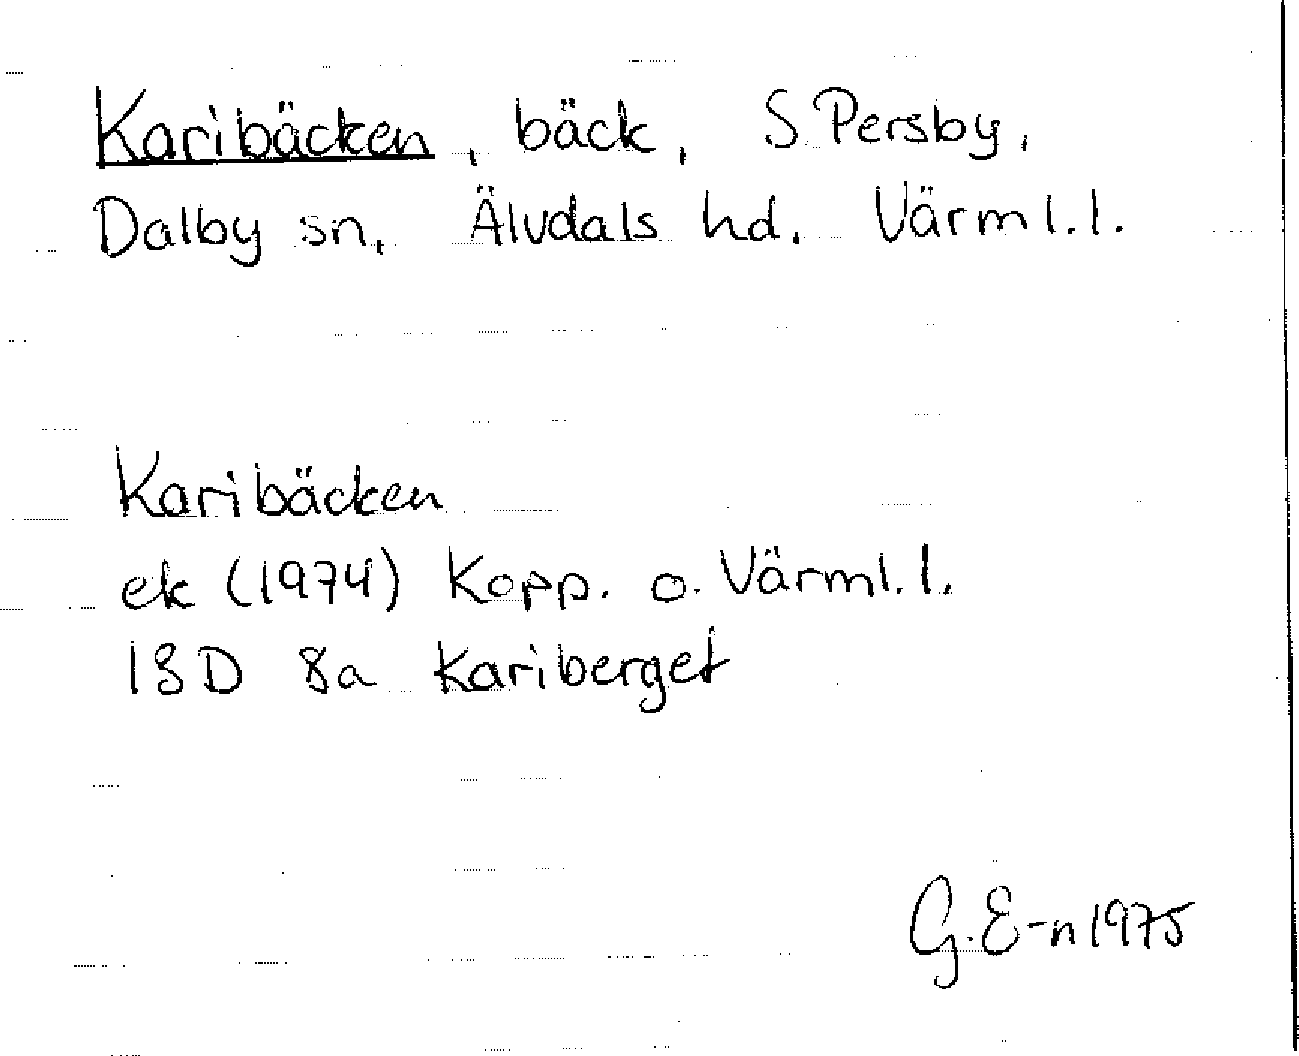 Karibäcken, bäck, S Persby,
Dalby sn, Älvdals hd. Värml.l.
Karibäcken
ek (1974) Kopp. o. Värml.l.
13D 8a Kariberget
G.E-n 1975